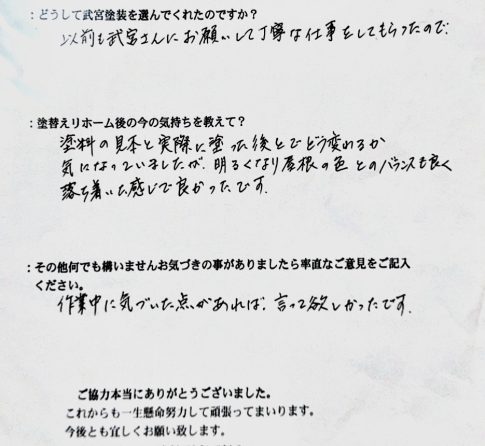 ：どうして武宮塗装を選んでくれたのですか？
以前も武宮さんにお願いして丁寧な仕事をしてもらったので.
：塗替えリホーム後の今の気持ちを教えて？
塗料の見本と実際に塗った後とでどう変わるか
気になっていましたが、明るくなり屋根の色とのバランスも良く
落ち着いた感じで良かったです.
：その他何でも構いませんお気づきの事がありましたら率直なご意見をご記入
ください。
作業中に気づいた点があれば、言って欲しかったです.
ご協力本当にありがとうございました。
これからも一生懸命努力して頑張ってまいります。
今後とも宜しくお願い致します。